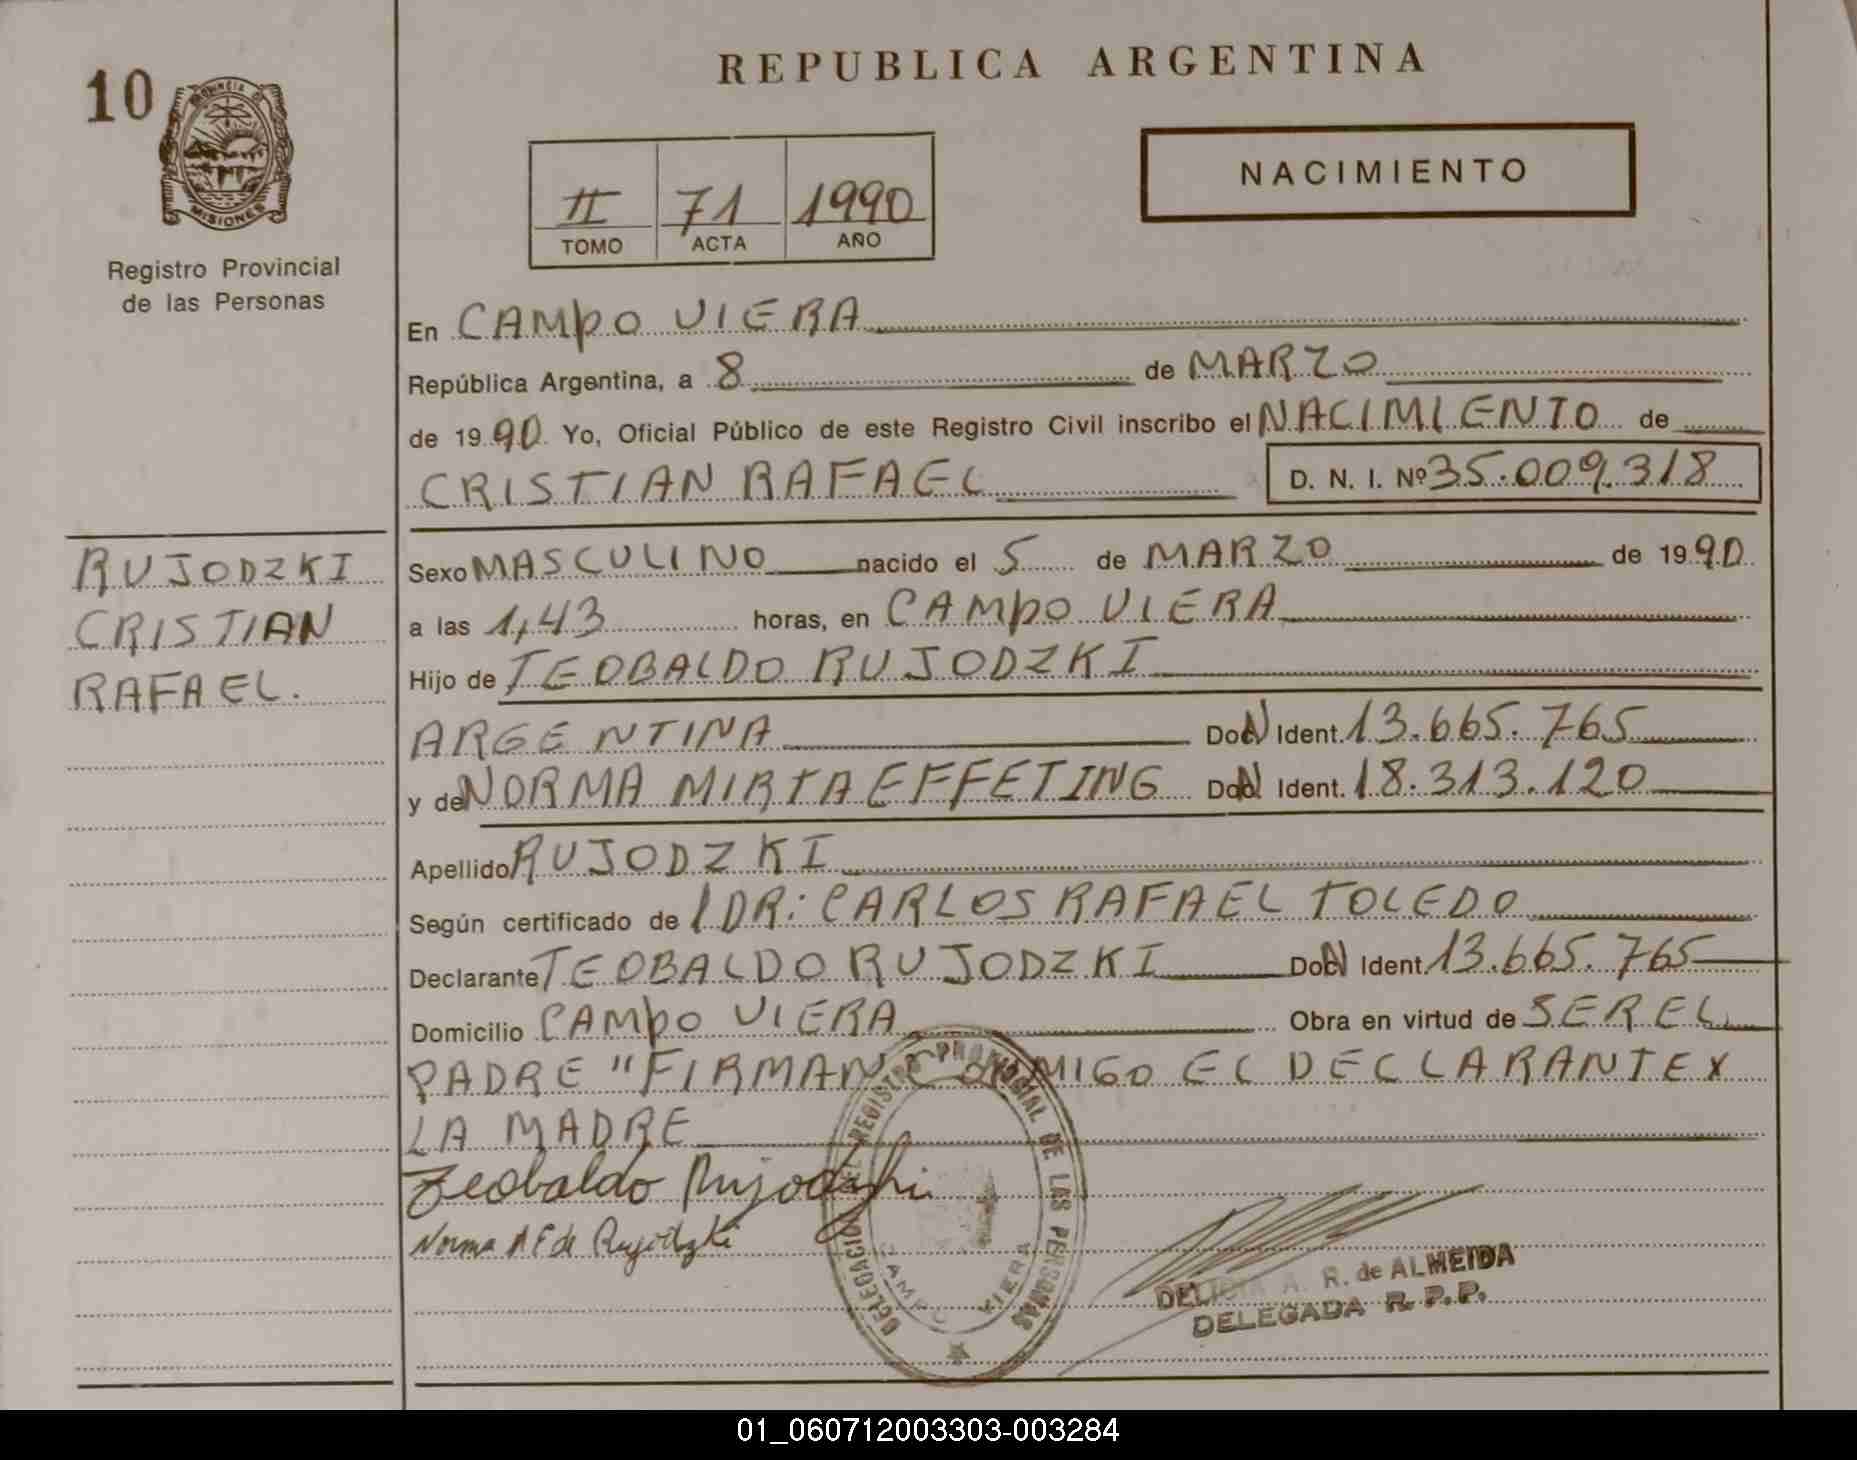 REPUBLICA ARGENTINA
10
PROVINCIA DE
MISIONES
Registro Provincial
de las Personas
NACIMIENTO
II 71 1990
TOMO ACTA AÑO
En CAMPO VIERA
República Argentina, a 8 de MARZO
de 1990 Yo, Oficial Público de este Registro Civil inscribo el NACIMIENTO de
CRISTIAN RAFAEL D. N. I. Nº 35.009.318
RUJODZKI
CRISTIAN
RAFAEL.
Sexo MASCULINO nacido el 5 de MARZO de 1990
a las 1,43 horas, en CAMPO VIERA
Hijo de TEOBALDO RUJODZKI
ARGENTINA Doc Ident. 13.665.765
y de NORMA MIRTA EFFETING Doc Ident. 18.313.120
Apellido RUJODZKI
Según certificado de DR: CARLOS RAFAEL TOLEDO
Declarante TEOBALDO RUJODZKI Doc Ident. 13.665.765
Domicilio CAMPO VIERA Obra en virtud de SER EL
PADRE "FIRMAN CONMIGO EL DECLARANTE X
LA MADRE
Teobaldo Rujodzki
Norma M E de Rujodzki
DELEGACION DEL REGISTRO PROVINCIAL DE LAS PERSONAS
CAMPO VIERA
DELICIA A. R. de ALMEIDA
DELEGADA R. P. P.
01_060712003303-003284